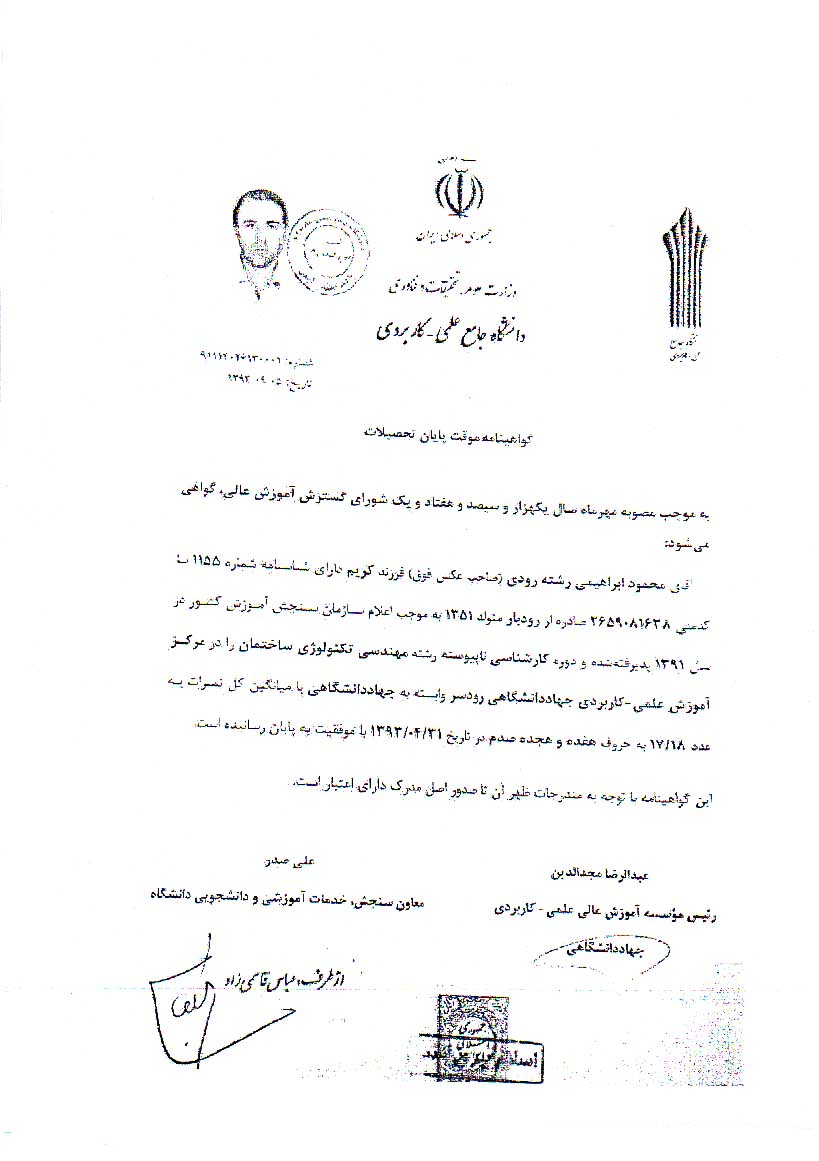 جمهوری اسلامی ایران
وزارت علوم، تحقیقات و فناوری
دانشگاه جامع علمی - کاربردی
دانشگاه جامع
علمی - کاربردی
شماره:
تاریخ: ۱۳۹۳.۰۹.۰۵
گواهینامه موقت پایان تحصیلات
به موجب مصوبه مهرماه سال یکهزار و سیصد و هفتاد و یک شورای گسترش آموزش عالی، گواهی
می شود:
آقای محمود ابراهیمی رشته رودی (صاحب عکس فوق) فرزند کریم دارای شناسنامه شماره ۱۱۵۵ با
کدملی ۲۶۵۹۰۸۱۶۳۸ صادره از رودبار متولد ۱۳۵۱ به موجب اعلام سازمان سنجش آموزش کشور در
سال ۱۳۹۱ پذیرفته‌شده و دوره کارشناسی ناپیوسته رشته مهندسی تکنولوژی ساختمان را در مرکز
آموزش علمی-کاربردی جهاددانشگاهی رودسر وابسته به جهاددانشگاهی با میانگین کل نمرات به
عدد ۱۷/۱۸ به حروف هفده و هجده صدم در تاریخ ۱۳۹۳/۰۴/۳۱ با موفقیت به پایان رسانیده است.
این گواهینامه با توجه به مندرجات ظهر آن تا صدور اصل مدرک دارای اعتبار است.
عبدالرضا مجدالدین
رئیس مؤسسه آموزش عالی علمی - کاربردی
جهاددانشگاهی
علی صدر
معاون سنجش، خدمات آموزشی و دانشجویی دانشگاه
از طرف، عباس قاسمی زاد
جمهوری
اسلامی